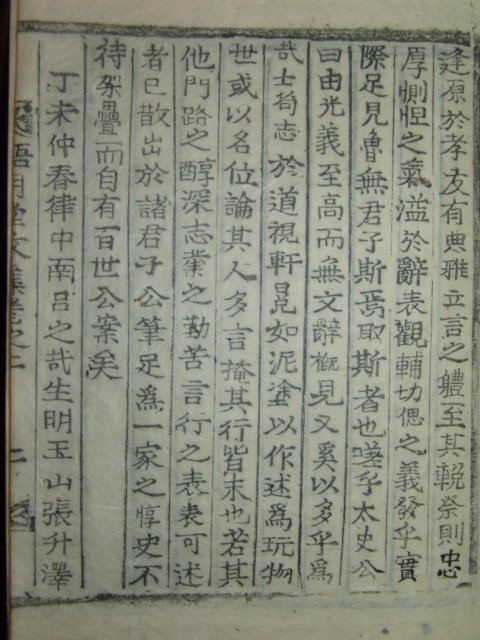 逢原於孝友有典雅立言之軆至其輓祭則忠
厚惻怛之氣溢於辭表觀輔切偲之義發乎實
際足見魯無君子斯焉取斯者也嗟乎太史公
曰由光義至高而無文辭槪見又奚以多乎爲
哉士苟志於道視軒冕如泥塗以作述爲玩物
世或以名位論其人多言掩其行皆末也若其
他門路之醇深志業之勤苦言行之表表可述
者已散出於諸君子公筆足爲一家之惇史不
待架疊而自有百世公案矣
丁未仲春律中南呂之哉生明玉山張升澤
悟明堂文集卷之二